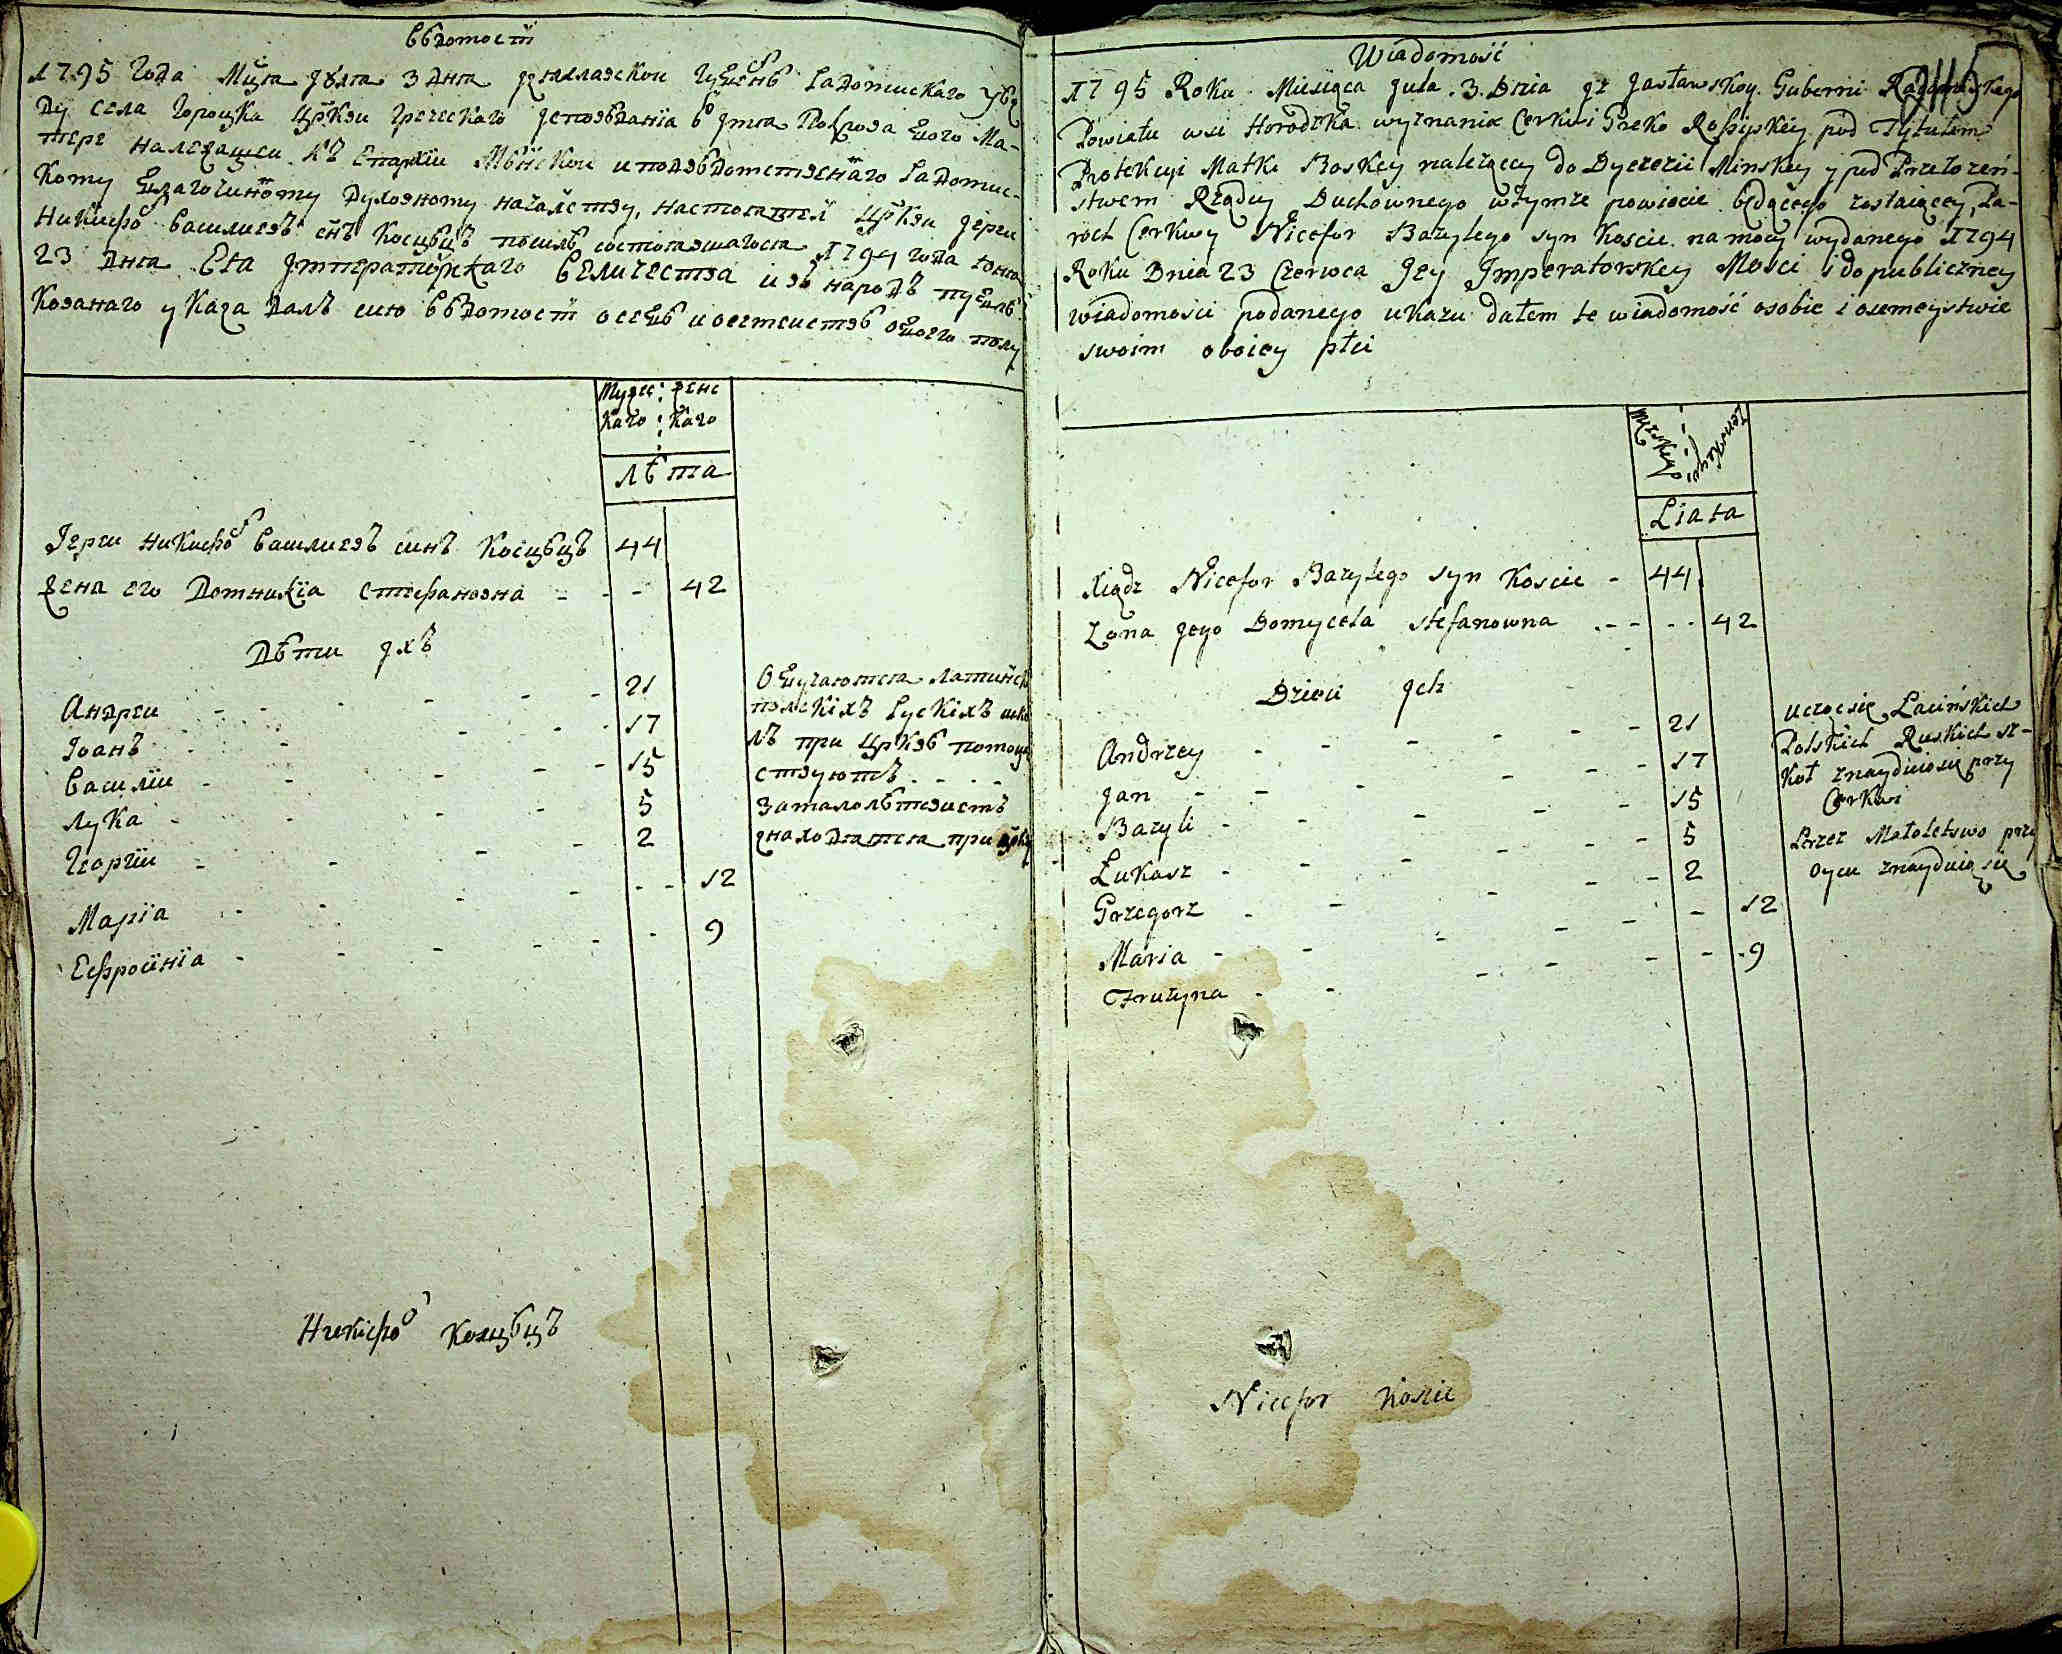 Вѣдомостї
1795 года Мцѧ Іꙋлѧ 3 днѧ Губернѣ Радомискаго уѣз
ду села Городка Цркви греческаго Ісповѣданїа во Імѧ Покрова Бого Ма-
тере належащеи къ Епархїи Мѣнскои и подвѣдомственнаго Радомис-
кому Благочинному Духовному началству, настоѧтел Цркви Іереи
Никифо Василиевъ снъ Косцѣцъ по силѣ состоѧвшагосѧ 1794 года Іюнѧ
23 днѧ Еѧ Імператорскаго Величества и въ народъ публѣ
кованаго указа далъ сию вѣдомостї о себѣ и о семеиствѣ обоего полу
Мужес Женс
каго каго
лѣта
Іереи Никифо Василиевъ синъ Косцѣцъ 44
Жена его Домникїа Стефановна - - - 42
Дѣти Іхъ
Андреи - - - - - 21
Іоанъ - - - - - 17
Василїи - - - - - 15
Лука - - - - 5
Георгїи - - - - 2
Марїа - - - - - - 12
Ефросїнїа - - - - - - 9
Обучаютсѧ Латинс
полскіхъ Рускіхъ шко
лъ при Цркви помощ
ствуютъ - - - -
За малолѣтвисть
Знаходѧтсѧ при
Никіфо Косцѣцъ
Wiadomość
1795 Roku Miesiąca Jula .3. Dnia Jz Jasławskoy Guberni Radomskego
Powiatu wsi Horodzka wyznania Cerkwi Greko Rossyiskiey pod Tytułem
Protekcyi Matki Boskiey należącey do Dyecezii Minskiey y pod Przełożeń-
stwem Rządcy Duchownego wtymże powiecie będącego zostaiącey, Pa-
roch Cerkwy Nicefor Bazylego syn Koscic na mocy wydanego 1794
Roku Dnia 23 Czerwca Jey Jmperatorskiey Mosci i do publiczney
wiadomości podanego ukazu dałem te wiadomość o sobie i o semeystwie
swoim oboiey płci
Męzkiego Zenskiego
Liata
Xiądz Nicefor Bazylego syn Koscic - 44
Zona Jego Domycela Stefanowna - - - - 42
Dzieci Jch
Andrzey - - - - - 21
Jan - - - - - 17
Bazyli - - - - - 15
Lukasz - - - - - 5
Grzegorz - - - - - 2
Maria - - - - - - 12
Fruzyna - - - - - - 9
Uczącsię Łacińskich
Polskich Ruskich sz-
koł znayduiosię przy
Cerkwi
Przez Małoletswo przy
Oycu znayduią się
Nicefor Koscic